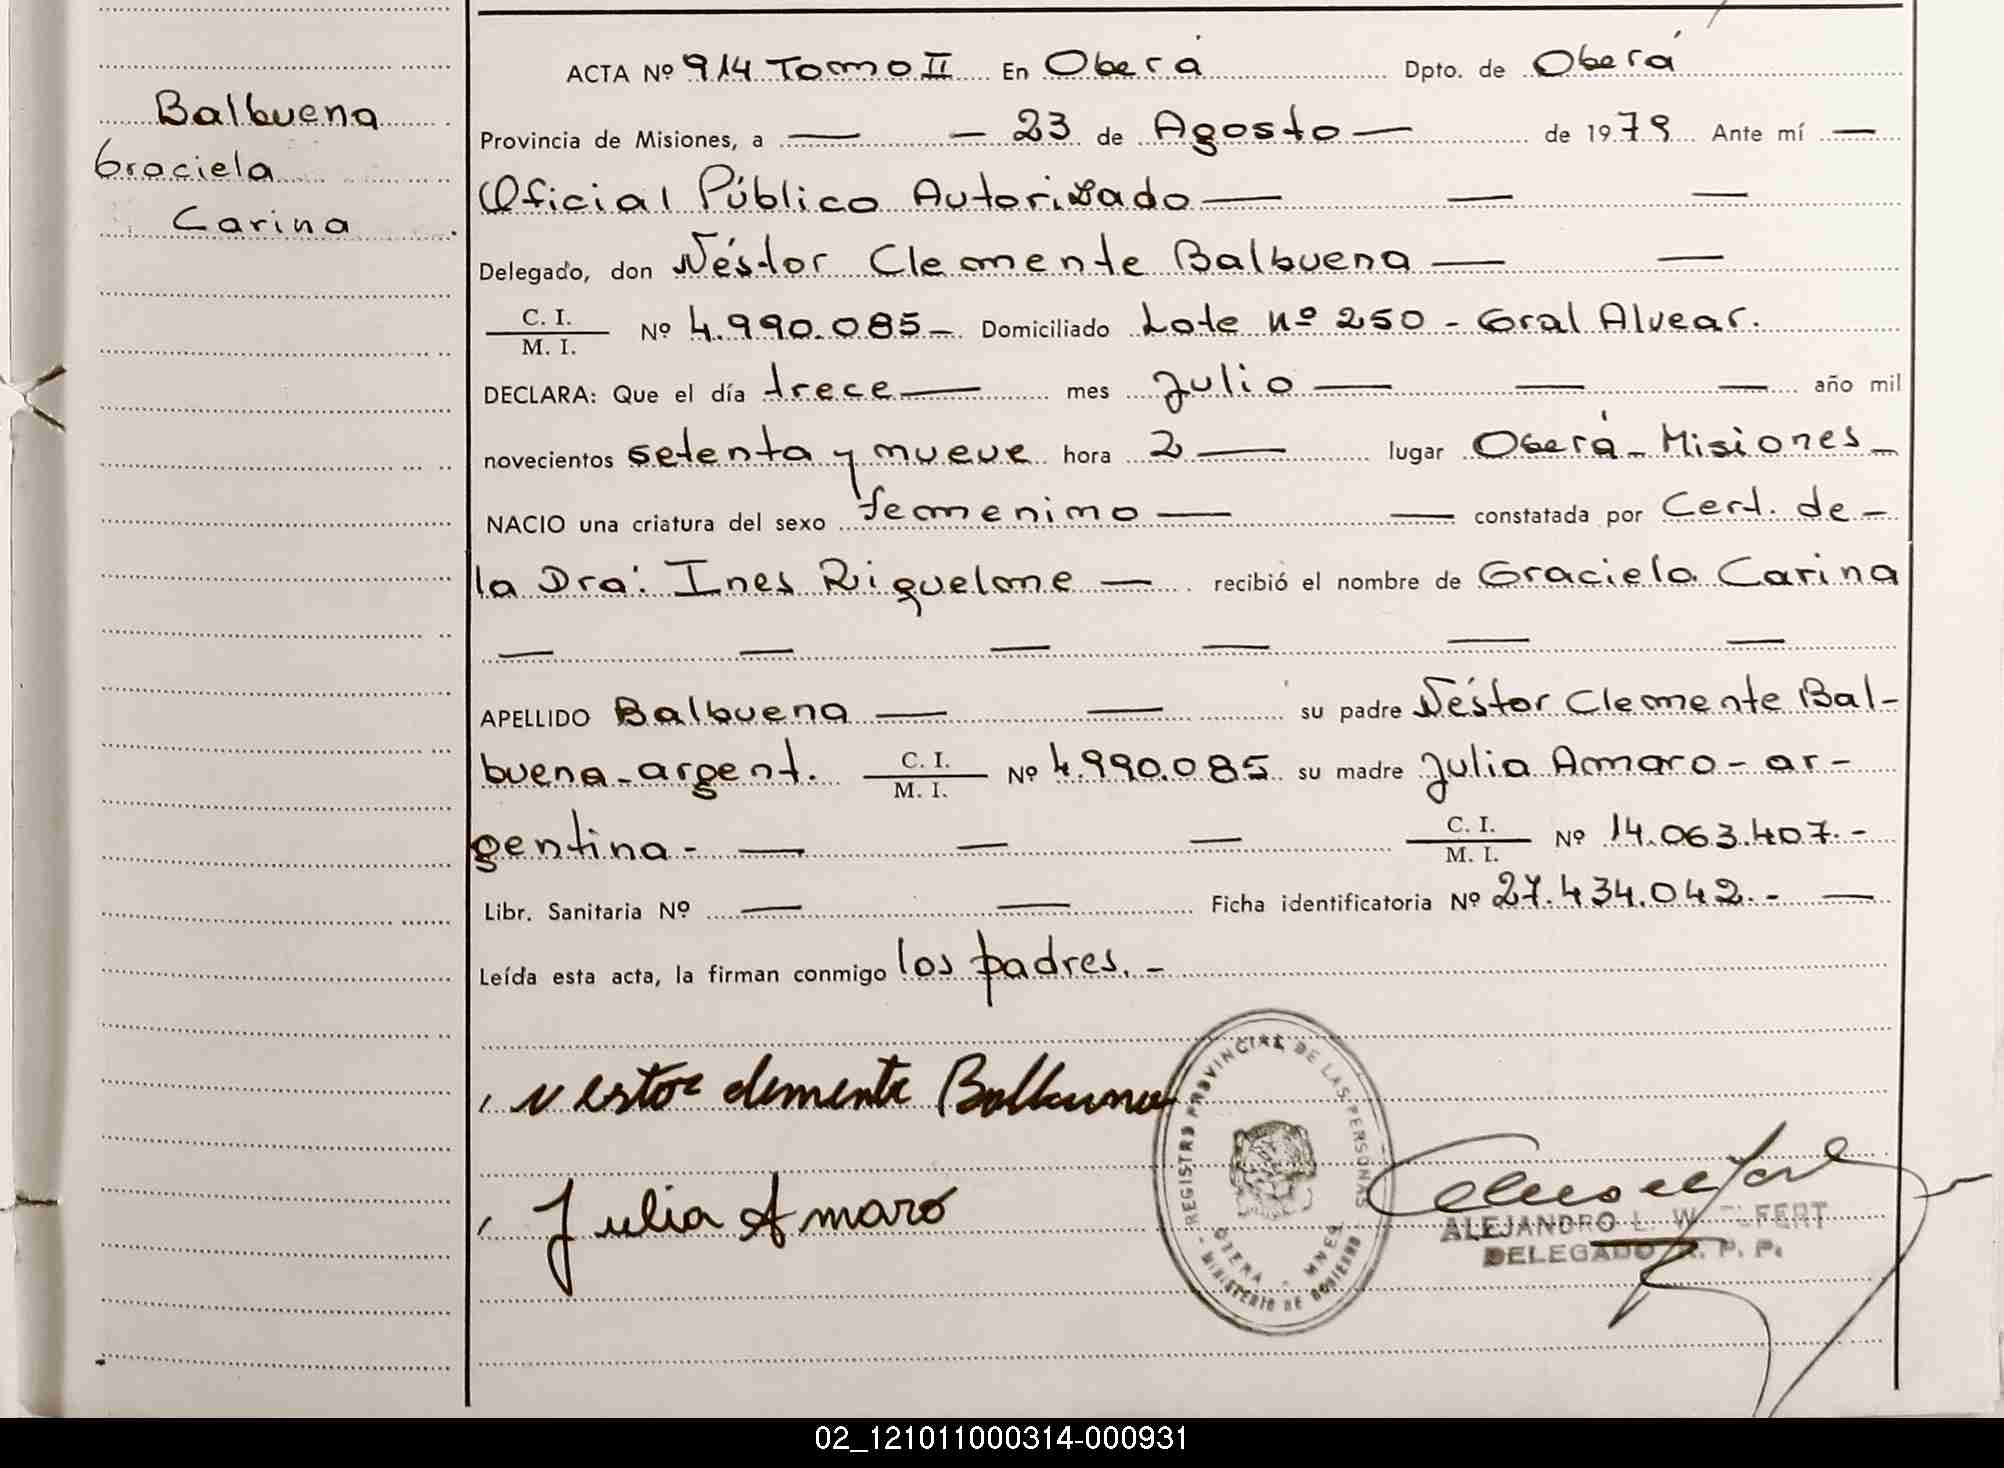 Balbuena
Graciela
Carina
ACTA Nº 914 Tomo II En Oberá Dpto. de Oberá
Provincia de Misiones, a — — 23 de Agosto — de 1979 Ante mí —
Oficial Público Autorizado — — —
Delegado, don Néstor Clemente Balbuena — —
C. I.
M. I. Nº 4.990.085 - Domiciliado Lote nº 250 - Gral Alvear.
DECLARA: Que el día trece — mes Julio — — — año mil
novecientos setenta y nueve hora 2 — lugar Oberá - Misiones -
NACIO una criatura del sexo femenino — — constatada por Cert. de -
la Dra: Ines Riquelme — recibió el nombre de Graciela Carina
— — — — — —
APELLIDO Balbuena — — su padre Néstor Clemente Bal-
buena - argent. C. I.
M. I. Nº 4.990.085 su madre Julia Amaro - ar-
gentina - — — — C. I.
M. I. Nº 14.063.407. -
Libr. Sanitaria Nº — — Ficha identificatoria Nº 27.434.042. - —
Leída esta acta, la firman conmigo los padres. -
Nestor clemente Balbuena
Julia Amaro
REGISTRO PROVINCIAL DE LAS PERSONAS
OBERA - MNES
- MINISTERIO DE GOBIERNO
ALEJANDRO L.
DELEGADO R. P. P.
02_121011000314-000931